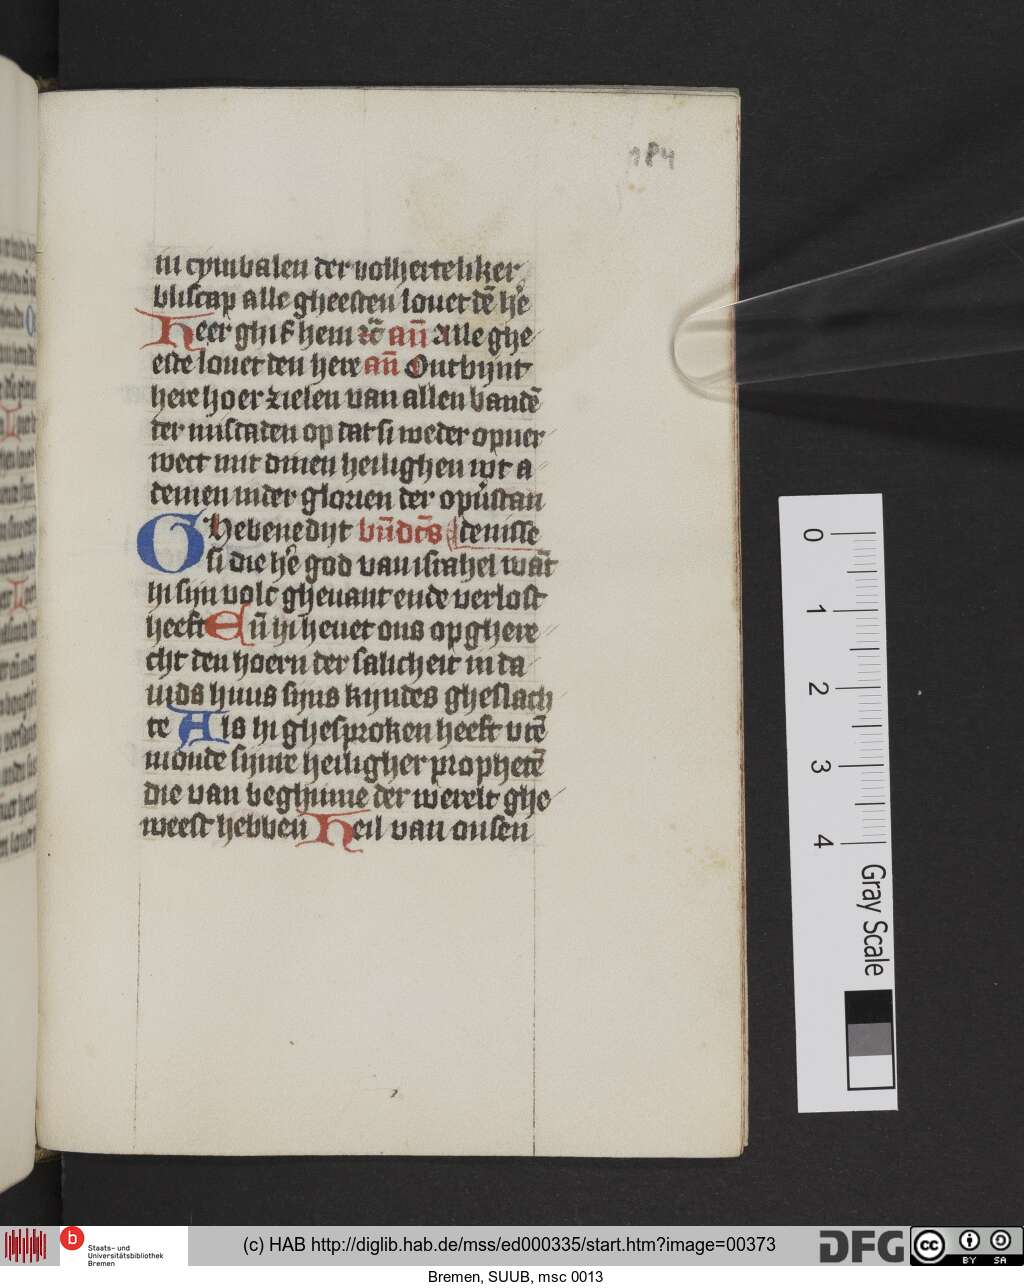 184
in cymbalen der volherteliker
bliscap alle gheesten louet dē hē
Heer ghif hem zc̄ an̄ Alle ghe
este louet den here an̄ Ontbijnt
here hoer zielen van allen bandē
der misdaden op dat si weder opuer
wect mit dinen heilighen wt a
demen in der glorien der opūstan
GHebenedijt bn̄dcs̄ denisse
si die hē god van israhel wāt
hi sijn volc ghevant ende verlost
heeft En̄ hi heuet ons opghere
cht den hoern der salicheit in da
uids huus sijns kijndes gheslach
te Als hi ghesproken heeft vtē
monde sijnre heiligher prophetē
die van beghinne der werelt ghe
weest hebben Heil van onsen
0
1
2
3
4
Gray Scale
b
Staats- und
Universitätsbibliothek
Bremen
(c) HAB http://diglib.hab.de/mss/ed000335/start.htm?image=00373
DFG
cc
BY SA
Bremen, SUUB, msc 0013